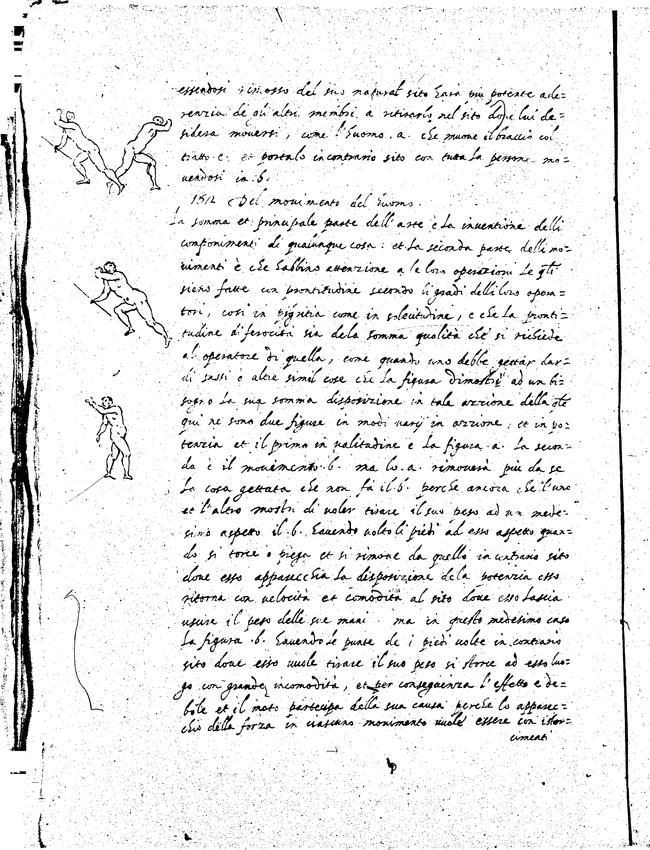 essendosi rimosso del suo natural sito hara più potente ade=
renzia de gli altri membri a ritirarlo nel sito dove lui de=
sidera moversi, come l'huomo .a. che muove il braccio col
tratto .c. et portalo in contrario sito con tutta la persona mo=
vendosi in .b.
Del movimento del huomo.
La somma et principale parte dell'arte è la inventione delli
componimenti di qualunque cosa: et la seconda parte delli mo=
vimenti è che habbino attenzione a le loro operazioni le qli
sieno fatte con prontitudine secondo li gradi delli loro opera=
tori, così in pigritia come in solecitudine, e che la pronti=
tudine di ferocità sia de la somma qualità che si richiede
al operatore di quella, come quando uno debbe gettar dar=
di sassi o altre simil cose che la figura dimostri ad un bi=
sogno la sua somma disposizione in tale azzione della qle
qui ne sono due figure in modi varij in azzione, et in po=
tenzia et il primo in valitudine è la figura .a. la secon=
da è il movimento .b. ma lo .a. rimoverà più da se
la cosa gettata che non fa il .b. perche ancora che l'uno
et l'altro mostri di voler tirare il suo peso ad un mede=
simo aspetto il .b. havendo volto li piedi ad esso aspetto quan=
do si torce o piega et si rimove da quello in contrario sito
dove esso apparecchia la disposizione de la potenzia esso
ritorna con velocità et comodità al sito dove esso lascia
uscire il peso delle sue mani. ma in questo medesimo caso
la figura .b. havendo le punte de i piedi volte in contrario
sito dove esso vuole tirare il suo peso si storce ad esso luo=
go con grande incomodità, et per conseguenza l'effetto è de=
bole et il moto partecipa della sua causa perche lo apparec=
chio della forza in ciascuno movimento vuole essere con istor=
cimenti